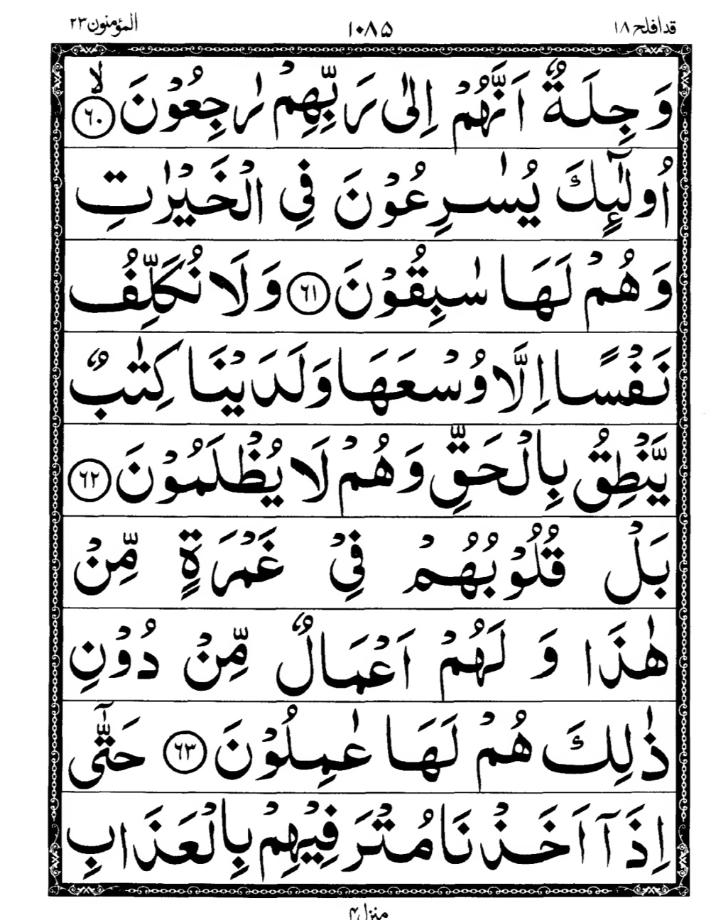 المؤمنون ٢٣ ١٠٨٥ قد افلح ١٨
وَجِلَةٌ اَنَّهُمْ اِلٰى رَبِّهِمْ رٰجِعُوْنَ ﴿۶۰﴾ ۙ
اُولٰٓئِكَ يُسٰرِعُوْنَ فِي الْخَيْرٰتِ
وَهُمْ لَهَا سٰبِقُوْنَ ﴿۶۱﴾ وَلَا نُكَلِّفُ
نَفْسًا اِلَّا وُسْعَهَا وَلَدَيْنَا كِتٰبٌ
يَّنْطِقُ بِالْحَقِّ وَهُمْ لَا يُظْلَمُوْنَ ﴿۶۲﴾
بَلْ قُلُوْبُهُمْ فِيْ غَمْرَةٍ مِّنْ
هٰذَا وَ لَهُمْ اَعْمَالٌ مِّنْ دُوْنِ
ذٰلِكَ هُمْ لَهَا عٰمِلُوْنَ ﴿۶۳﴾ حَتّٰٓى
اِذَآ اَخَذْنَا مُتْرَفِيْهِمْ بِالْعَذَابِ
منزل ۴